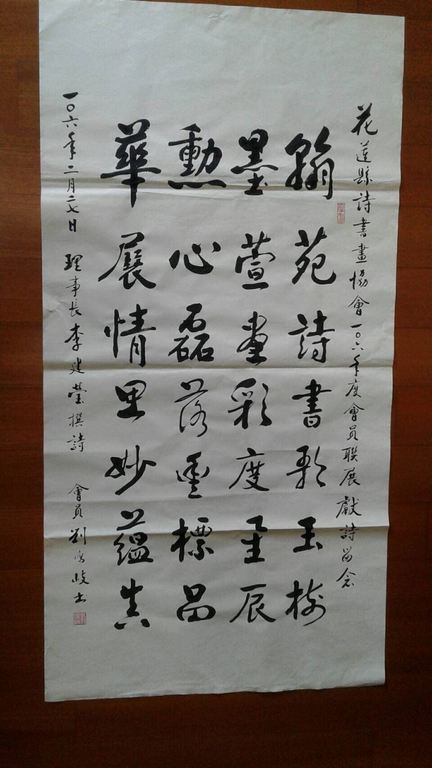 花蓮縣詩書畫協會一〇六年度會員聯展獻詩留念
翰苑詩書玉樹
墨萱畫彩度星辰
勳心磊落標品
華展情里妙蘊真
一〇六年二月二七日 理事長李建瑩撰詩 會員劉峻書